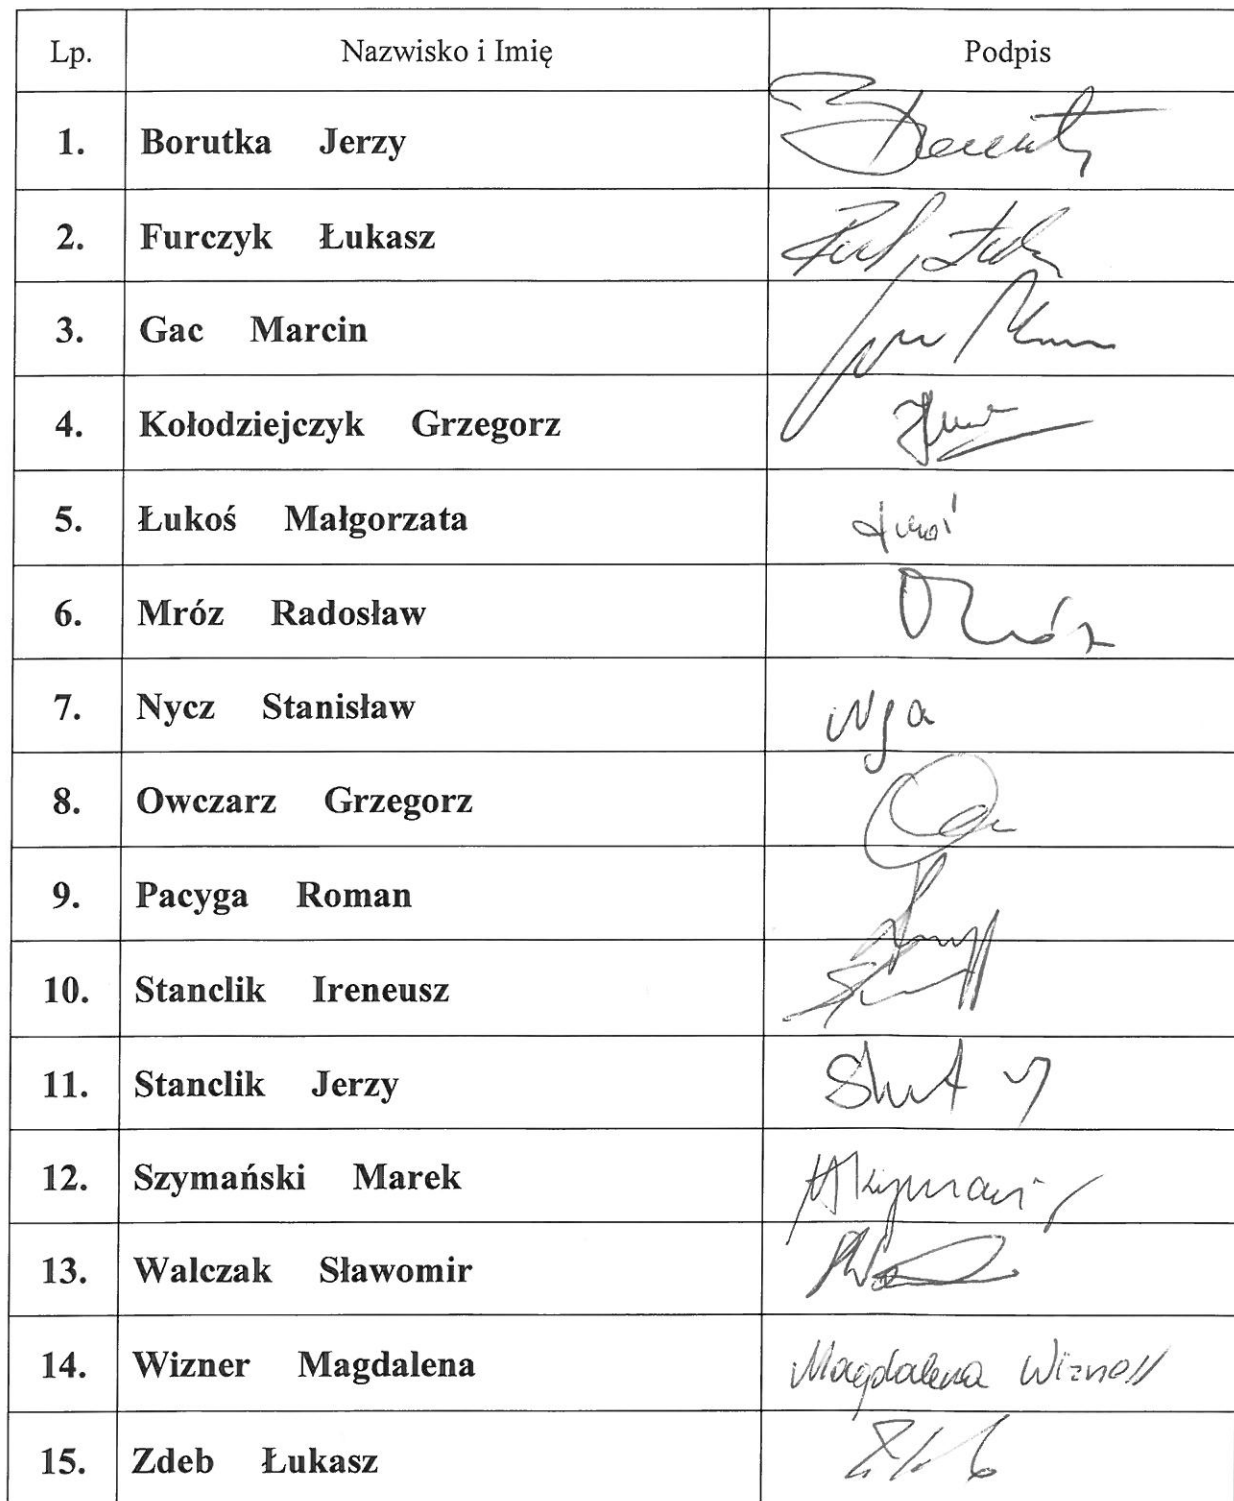 Lp. Nazwisko i Imię Podpis
1. Borutka Jerzy
2. Furczyk Łukasz
3. Gac Marcin
4. Kołodziejczyk Grzegorz
5. Łukoś Małgorzata
6. Mróz Radosław
7. Nycz Stanisław
8. Owczarz Grzegorz
9. Pacyga Roman
10. Stanclik Ireneusz
11. Stanclik Jerzy
12. Szymański Marek
13. Walczak Sławomir
14. Wizner Magdalena Magdalena Wizner
15. Zdeb Łukasz